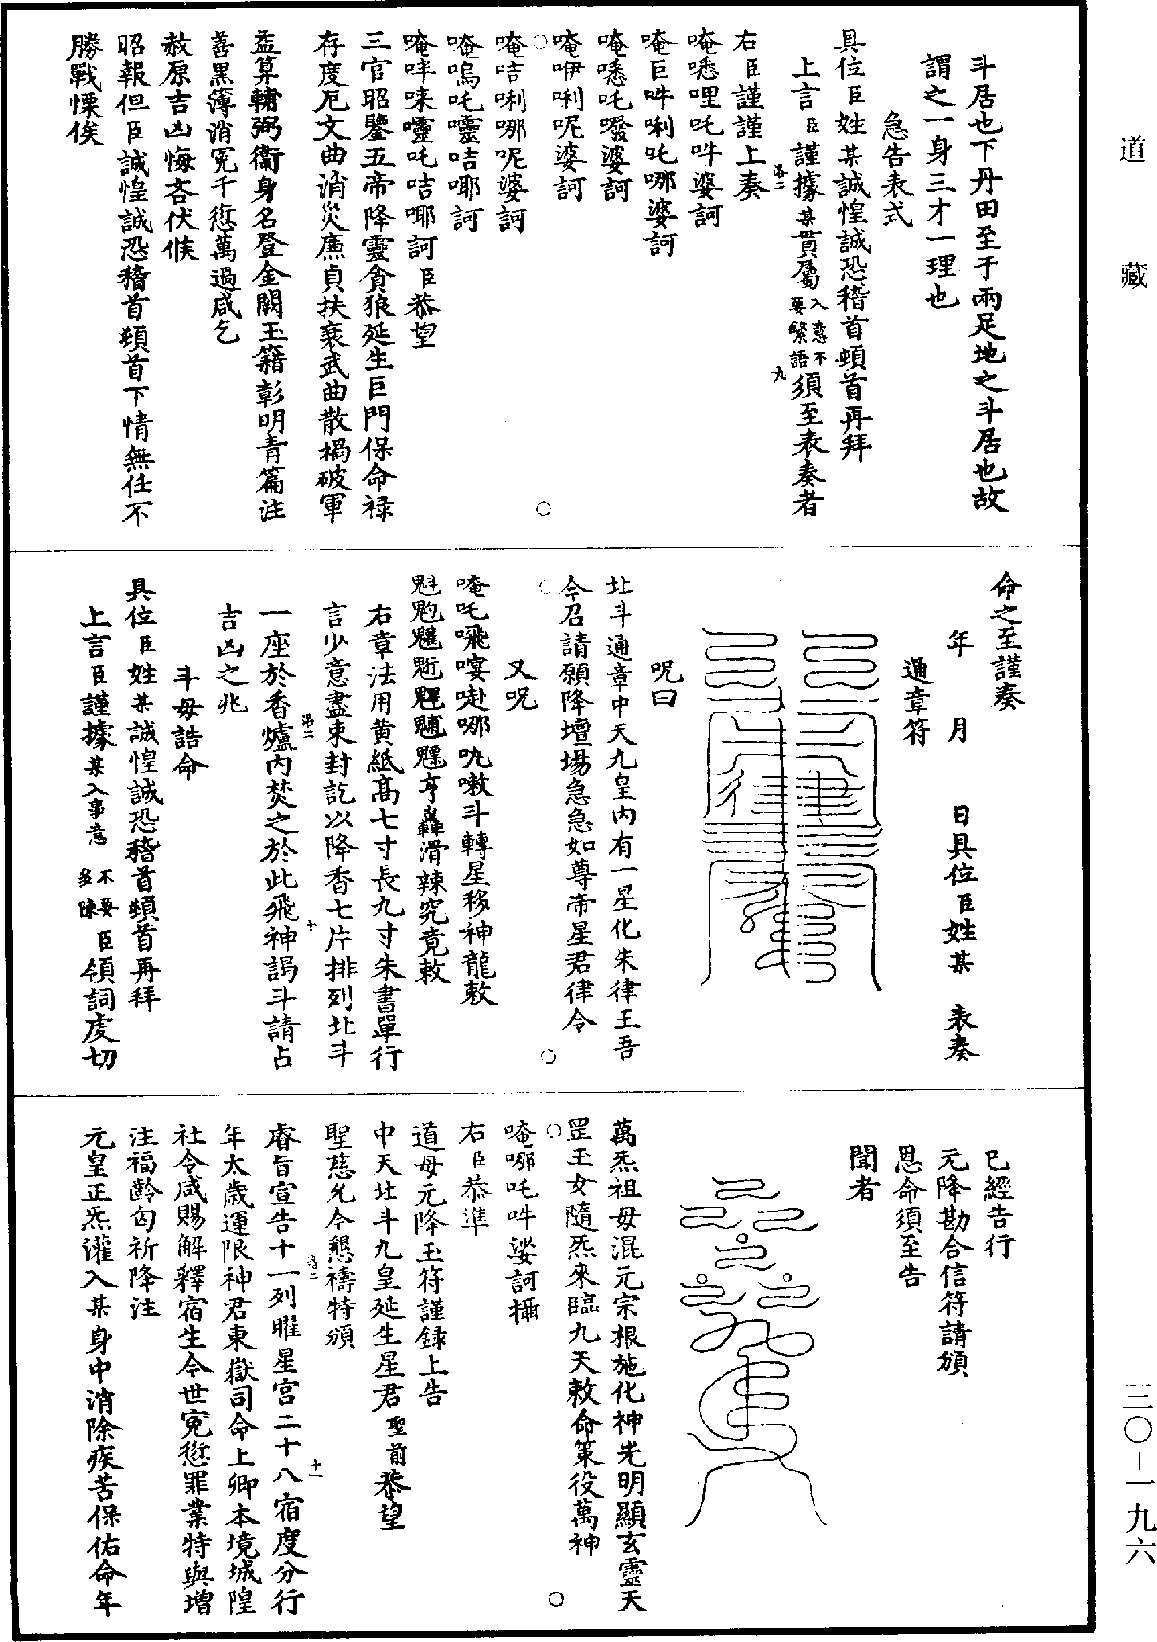 道藏
斗居也下丹田至于兩足地之斗居也故
謂之一身三才一理也
急告表式
具位臣姓某誠惶誠恐稽首頓首再拜
上言臣謹據某貫屬入意不要繁語須至表奏者
右臣謹謹上奏
唵悉哩吒吽婆訶
唵巨吽唎吒哪婆訶
唵嚥吒㘔婆訶
唵咿唎呢婆訶
唵咭唎哪呢婆訶
唵嗚吒囈咭哪訶
唵吽唻吒咭哪訶臣恭望
三官昭鑒五帝降靈貪狼延生巨門保命禄
存度厄文曲消災廉貞扶衰武曲散禍破軍
益算輔弼衛身名登金闕玉籍彰明青篇注
善黑簿消冤千愆萬過咸乞
赦原吉凶悔吝伏候
昭報但臣誠惶誠恐稽首頓首下情無任不
勝戰慄俟
命之至謹奏
年 月 日具位臣姓某 表奏
通章符
呪曰
北斗通章中天九皇内有一星化朱律王吾
今召請願降壇場急急如尊帝星君律令
又呪
唵吒㗩哪吮嗷斗轉星移神龍敕
魁𩲃䰢魓亨轟滑辣究竟敕
右章法用黄紙高七寸長九寸朱書單行
言少意盡束封訖以降香七片排列北斗
一座於香爐内焚之於此飛神謁斗請占
吉凶之兆
斗母誥命
具位臣姓某誠惶誠恐稽首頓首再拜
上言臣謹據某入事意不要多陳臣領詞虔切
已經告行
元降勘合信符請頒
恩命須至告
聞者
萬炁祖母混元宗根施化神光明顯玄靈天
罡玉女隨炁來臨九天敕命策役萬神
唵哪吒吽娑訶攝
右臣恭準
道母元降玉符謹録上告
中天北斗九皇延生星君聖前恭望
聖慈允令懇禱特頒
睿旨宣告十一列曜星宫二十八宿度分行
年太歲運限神君東嶽司命上卿本境城隍
社令咸賜解釋宿生今世冤愆罪業特與增
注福齡匃祈降注
元皇正炁灌入某身中消除疾苦保佑命年
三〇—一九六